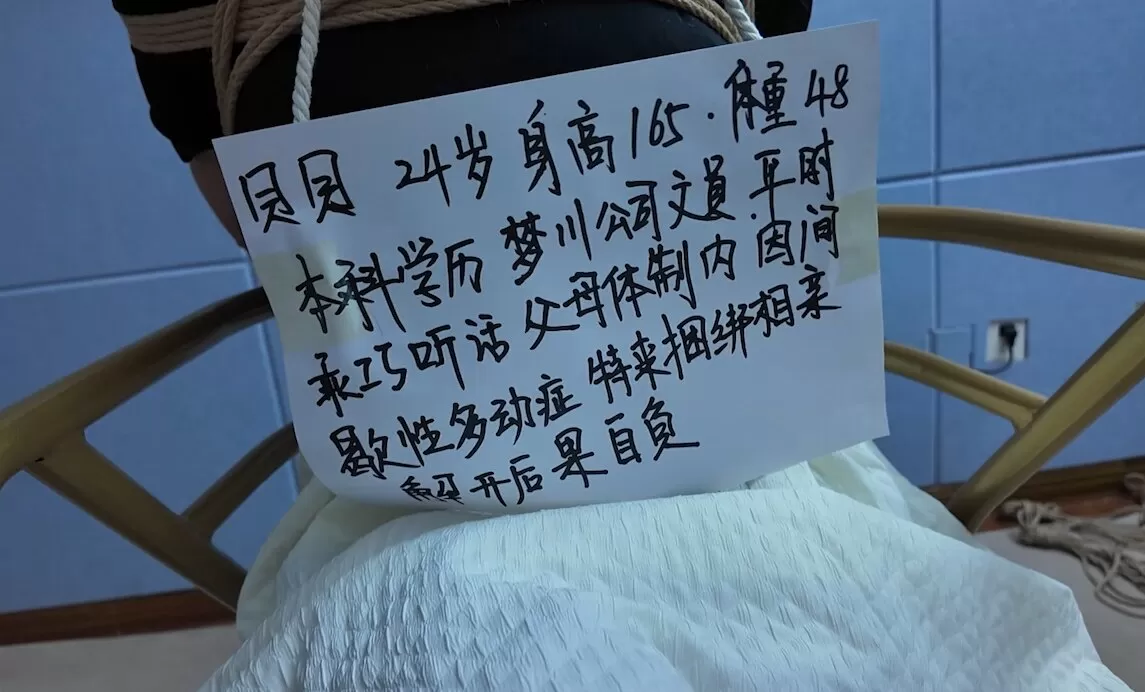 贝贝 24岁 身高165.体重48
本科学历 梦川公司文员.平时
乖巧听话 父母体制内 因间
歇性多动症 特来捆绑相亲
解开后果自负